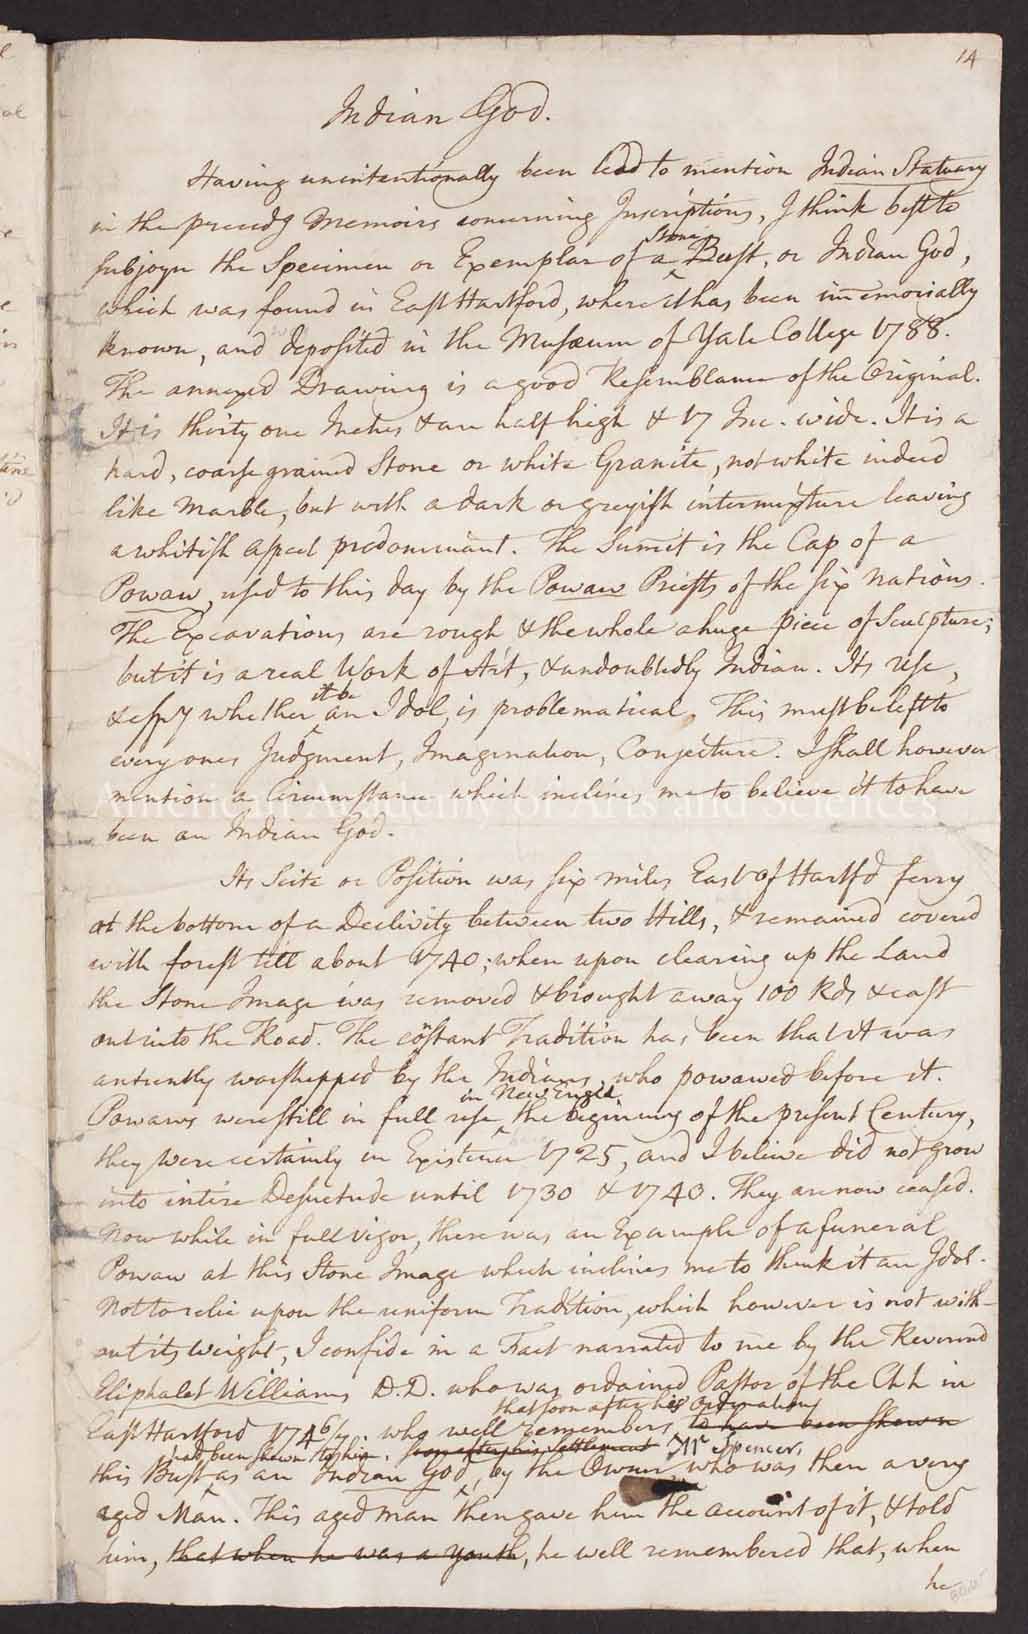 14
Indian God.
Having unintentionally been lead to mention Indian Statuary
in the precedg Memoirs concerning Inscriptions, I think best to
subjoyn the Specimen or Exemplar of a Stone Bust, or Indian God,
which was found in East Hartford, where it has been immemorially
known, and deposited in the Musæum of Yale College 1788.
The annexed Drawing is a good Resemblance of the Original.
It is thirty one Inches & an half high & 17 Inc. wide. It is a
hard, coarse grained Stone or white Granite, not white indeed
like Marble, but with a dark or greyish intermixture leaving
a whitish aspect predominant. The Sum̅it is the Cap of a
Powaw, used to this day by the Powaw Priests of the six Nations.
The Excavations are rough & the whole a huge piece of Sculpture;
but it is a real Work of Art, & undoubtedly Indian. Its use,
& espy whether it be an Idol, is problematical. This must be left to
every ones Judgment, Imagination, Conjecture. I shall however
mention a Circumstance which inclines me to believe it to have
been an Indian God.
Its Scite or Position was six miles East of Hartfd ferry
at the bottom of a Declivity between two Hills, & remained covered
with forest till about 1740; when upon clearing up the Land
the Stone Image was removed & brought away 100 Rds & cast
out into the Road. The co̅stant Tradition has been that it was
antiently worshipped by the Indians, who powawed before it.
Powaws were still in full use in New Engld the beginning of the present Century,
they were certainly in Existence 1725, and I believe did not grow
into intire Desuetude until 1730 & 1740. They are now ceased.
Now while in full vigor, there was an Example of a funeral
Powaw at this Stone Image which inclines me to think it an Idol.
Not to relie upon the uniform Tradition, which however is not with-
out its weight, I confide in a Fact narrated to me by the Reverend
Eliphalet Williams D.D. who was ordained Pastor of the Chh in
that soon after his Ordination
East Hartford 1746/7. who well remembers, to have been shewn
had been shewn to him. soon after his Settlement Mr Spencer,
this Bust as an Indian God, by the Owner who was then a very
aged Man. This aged man then gave him the account of it, & told
him, that when he was a youth, he well remembered that, when
he
American Academy of Arts and Sciences